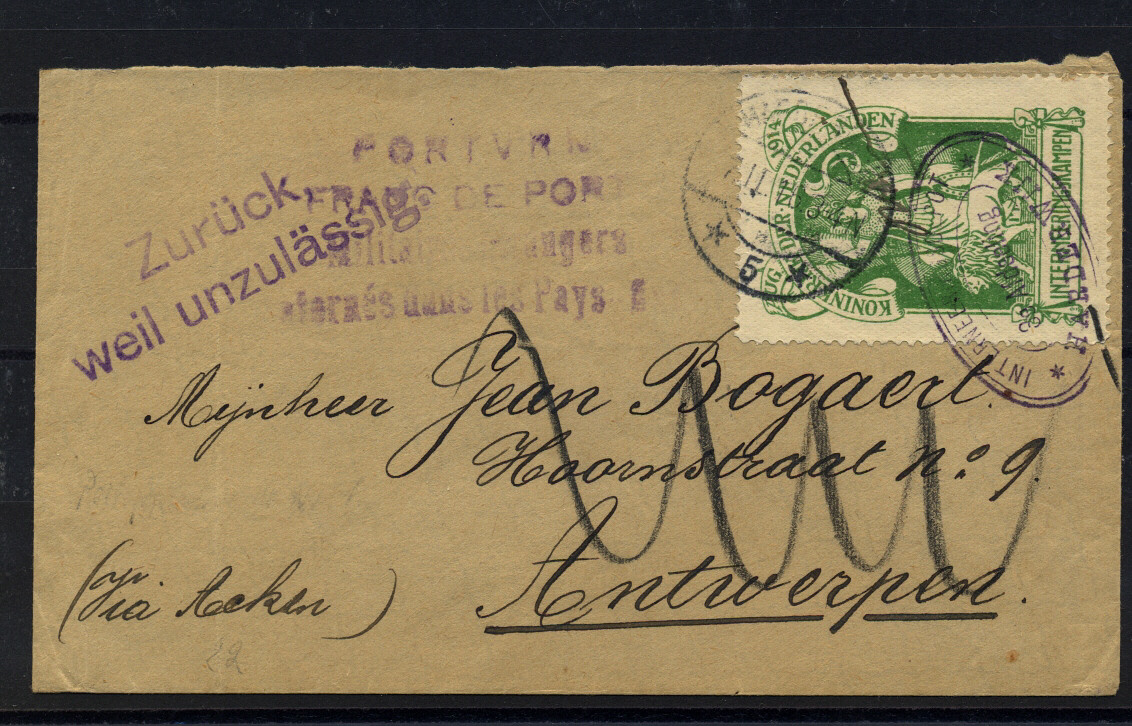 PORTVRIJ
FRANC DE PORT
Militaires étrangers
internés dans les Pays
Zurück,
weil unzulässig.
1914
KONINKRIJK DER NEDERLANDEN
INTERNEERINGSKAMPEN
5
INTERNEERING
HARDERWIJK
Mijnheer Jean Bogaert.
Hoornstraat no 9.
Antwerpen.
(Via Acken)
22